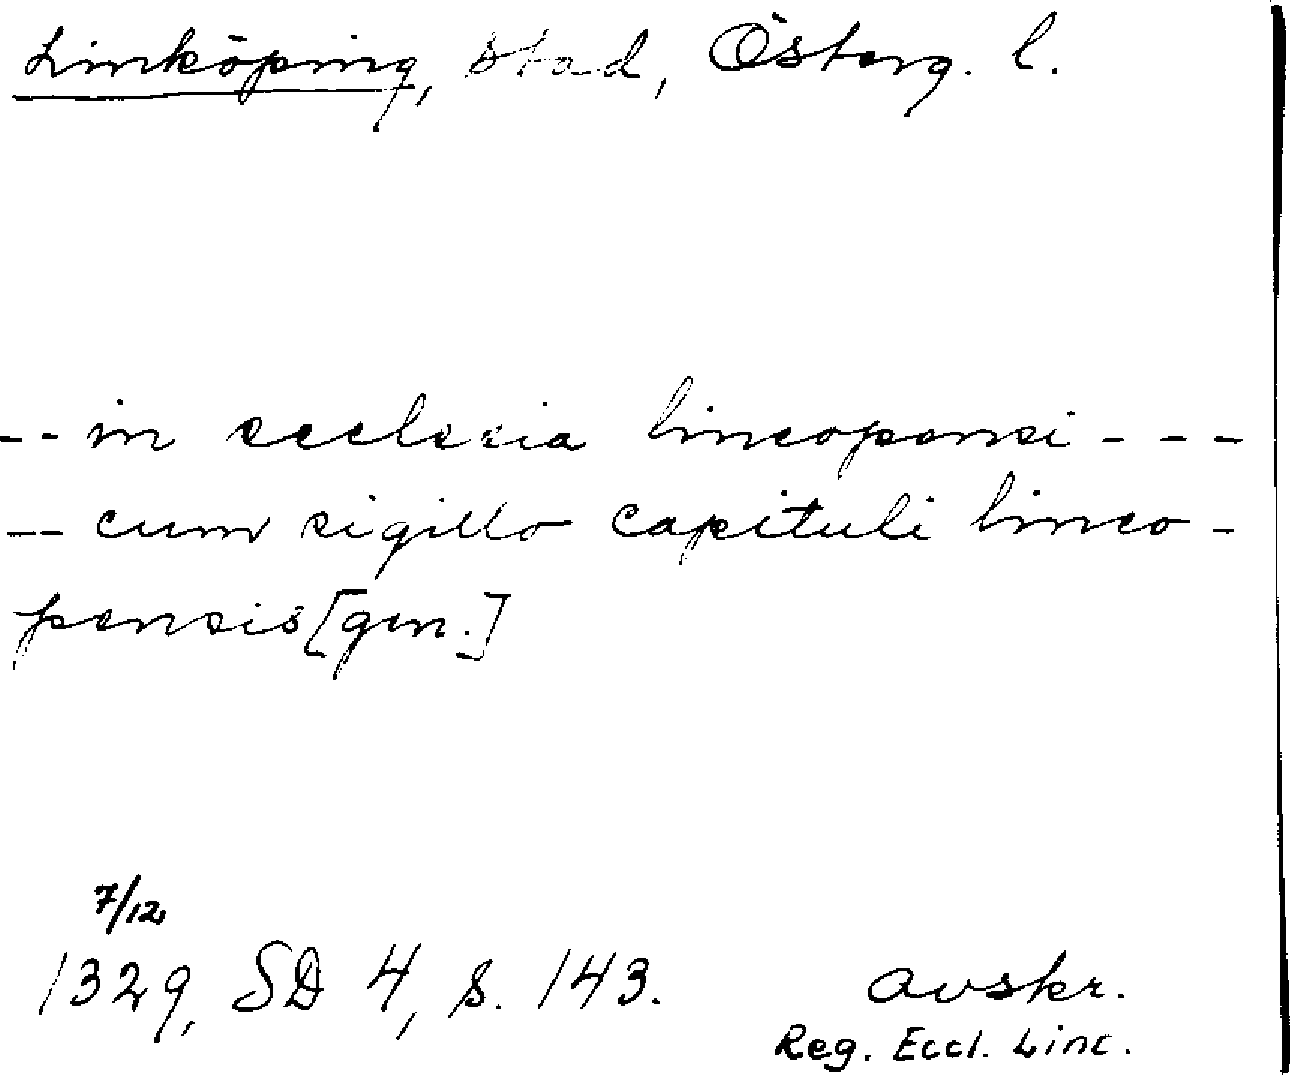 Linköping, stad, Österg. l.
-- in ecclesia lincopensi ---
-- cum sigillo capituli linco-
pensis [gen.]
7/12
1329, SD 4, s. 143. avskr.
Reg. Eccl. Linc.